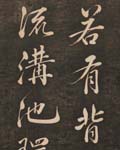 若有背
流溝池環